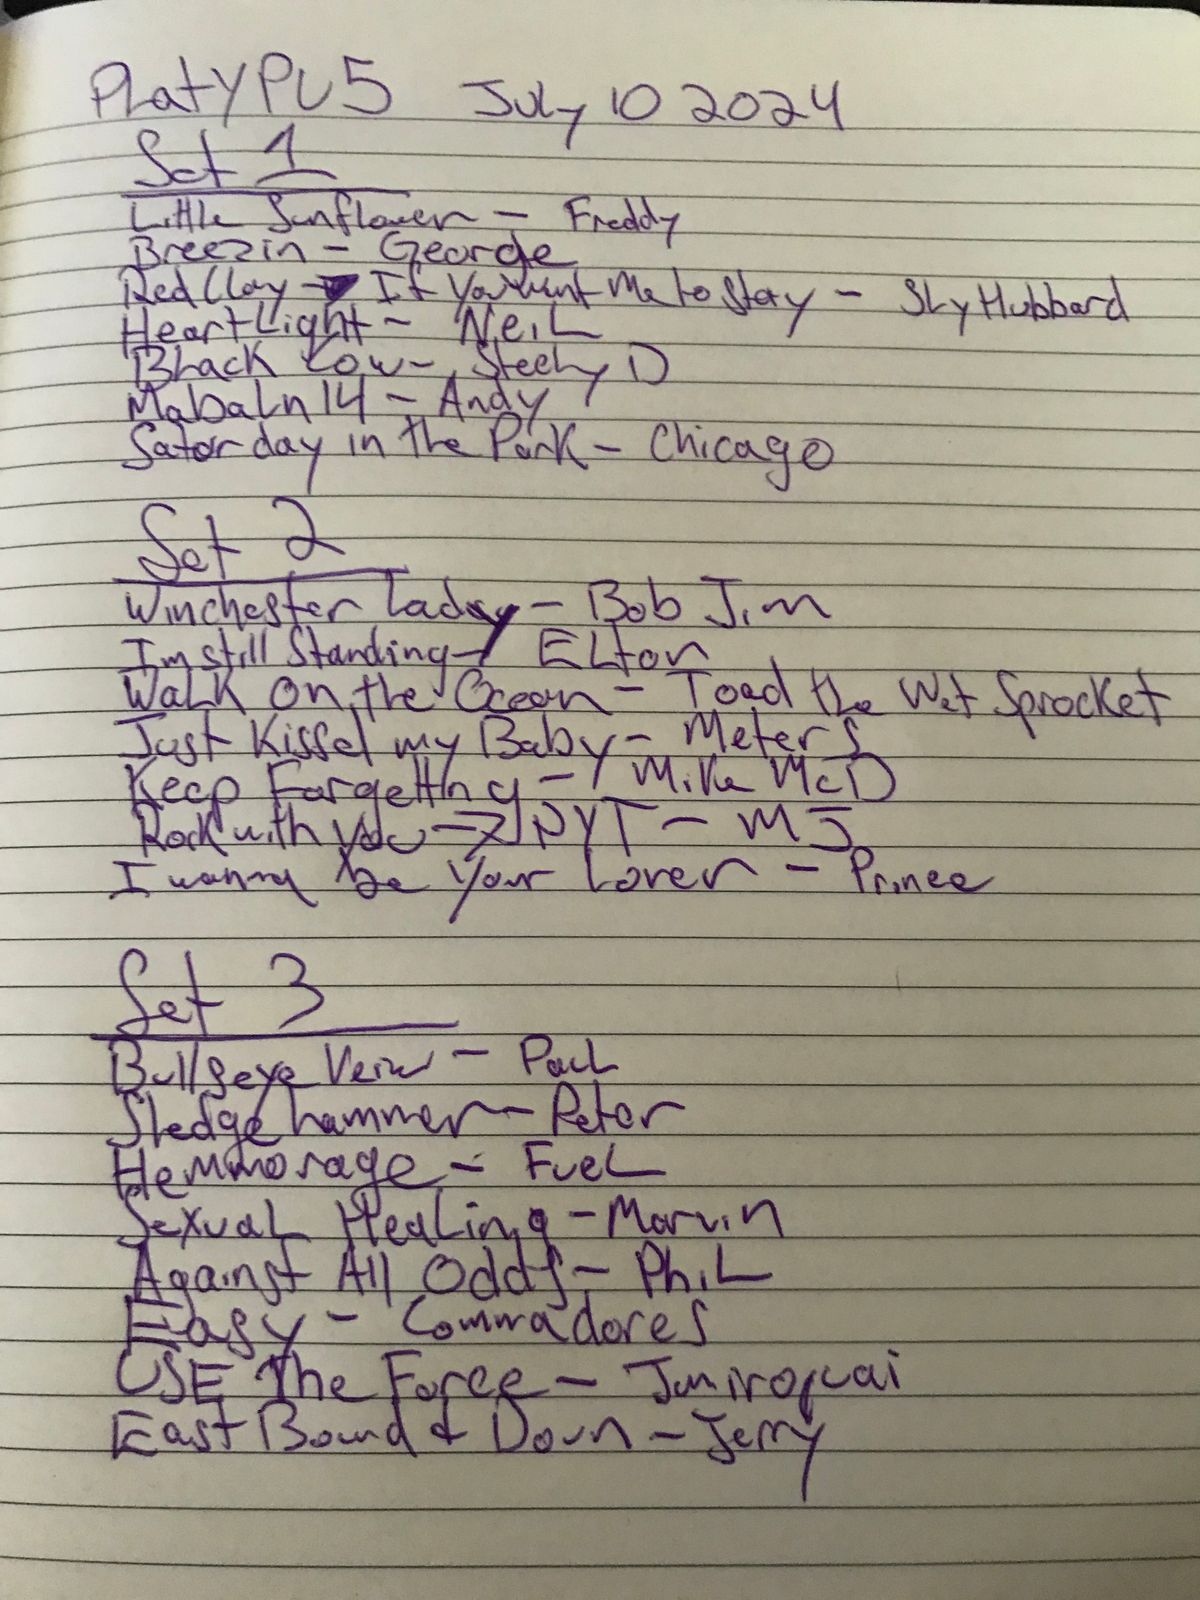 PLatYPU5 July 10 2024
Set 1
Little Sunflower - Freddy
Breezin - George
Red Clay → If You want Me to Stay - Sly Hubbard
HeartLight - NeiL
Black Cow - Steely D
MabaLn 14 - Andy
Saturday in the Park - Chicago
Set 2
Winchester Lady - Bob Jim
Im still Standing - ELton
WaLK on the Ocean - Toad the Wet Sprocket
Just Kissed my Baby - Meters
Keep Forgetting - Mike McD
Rock with You → PYT - MJ
I wanna be Your Lover - Prince
Set 3
Bullseye View - PauL
Sledgehammer - Peter
Hemmorage - FueL
SexuaL HeaLing - Marvin
Against All Odds - PhiL
Easy - Commadores
USE The Force - Jamiroquai
East Bound & Down - Jerry